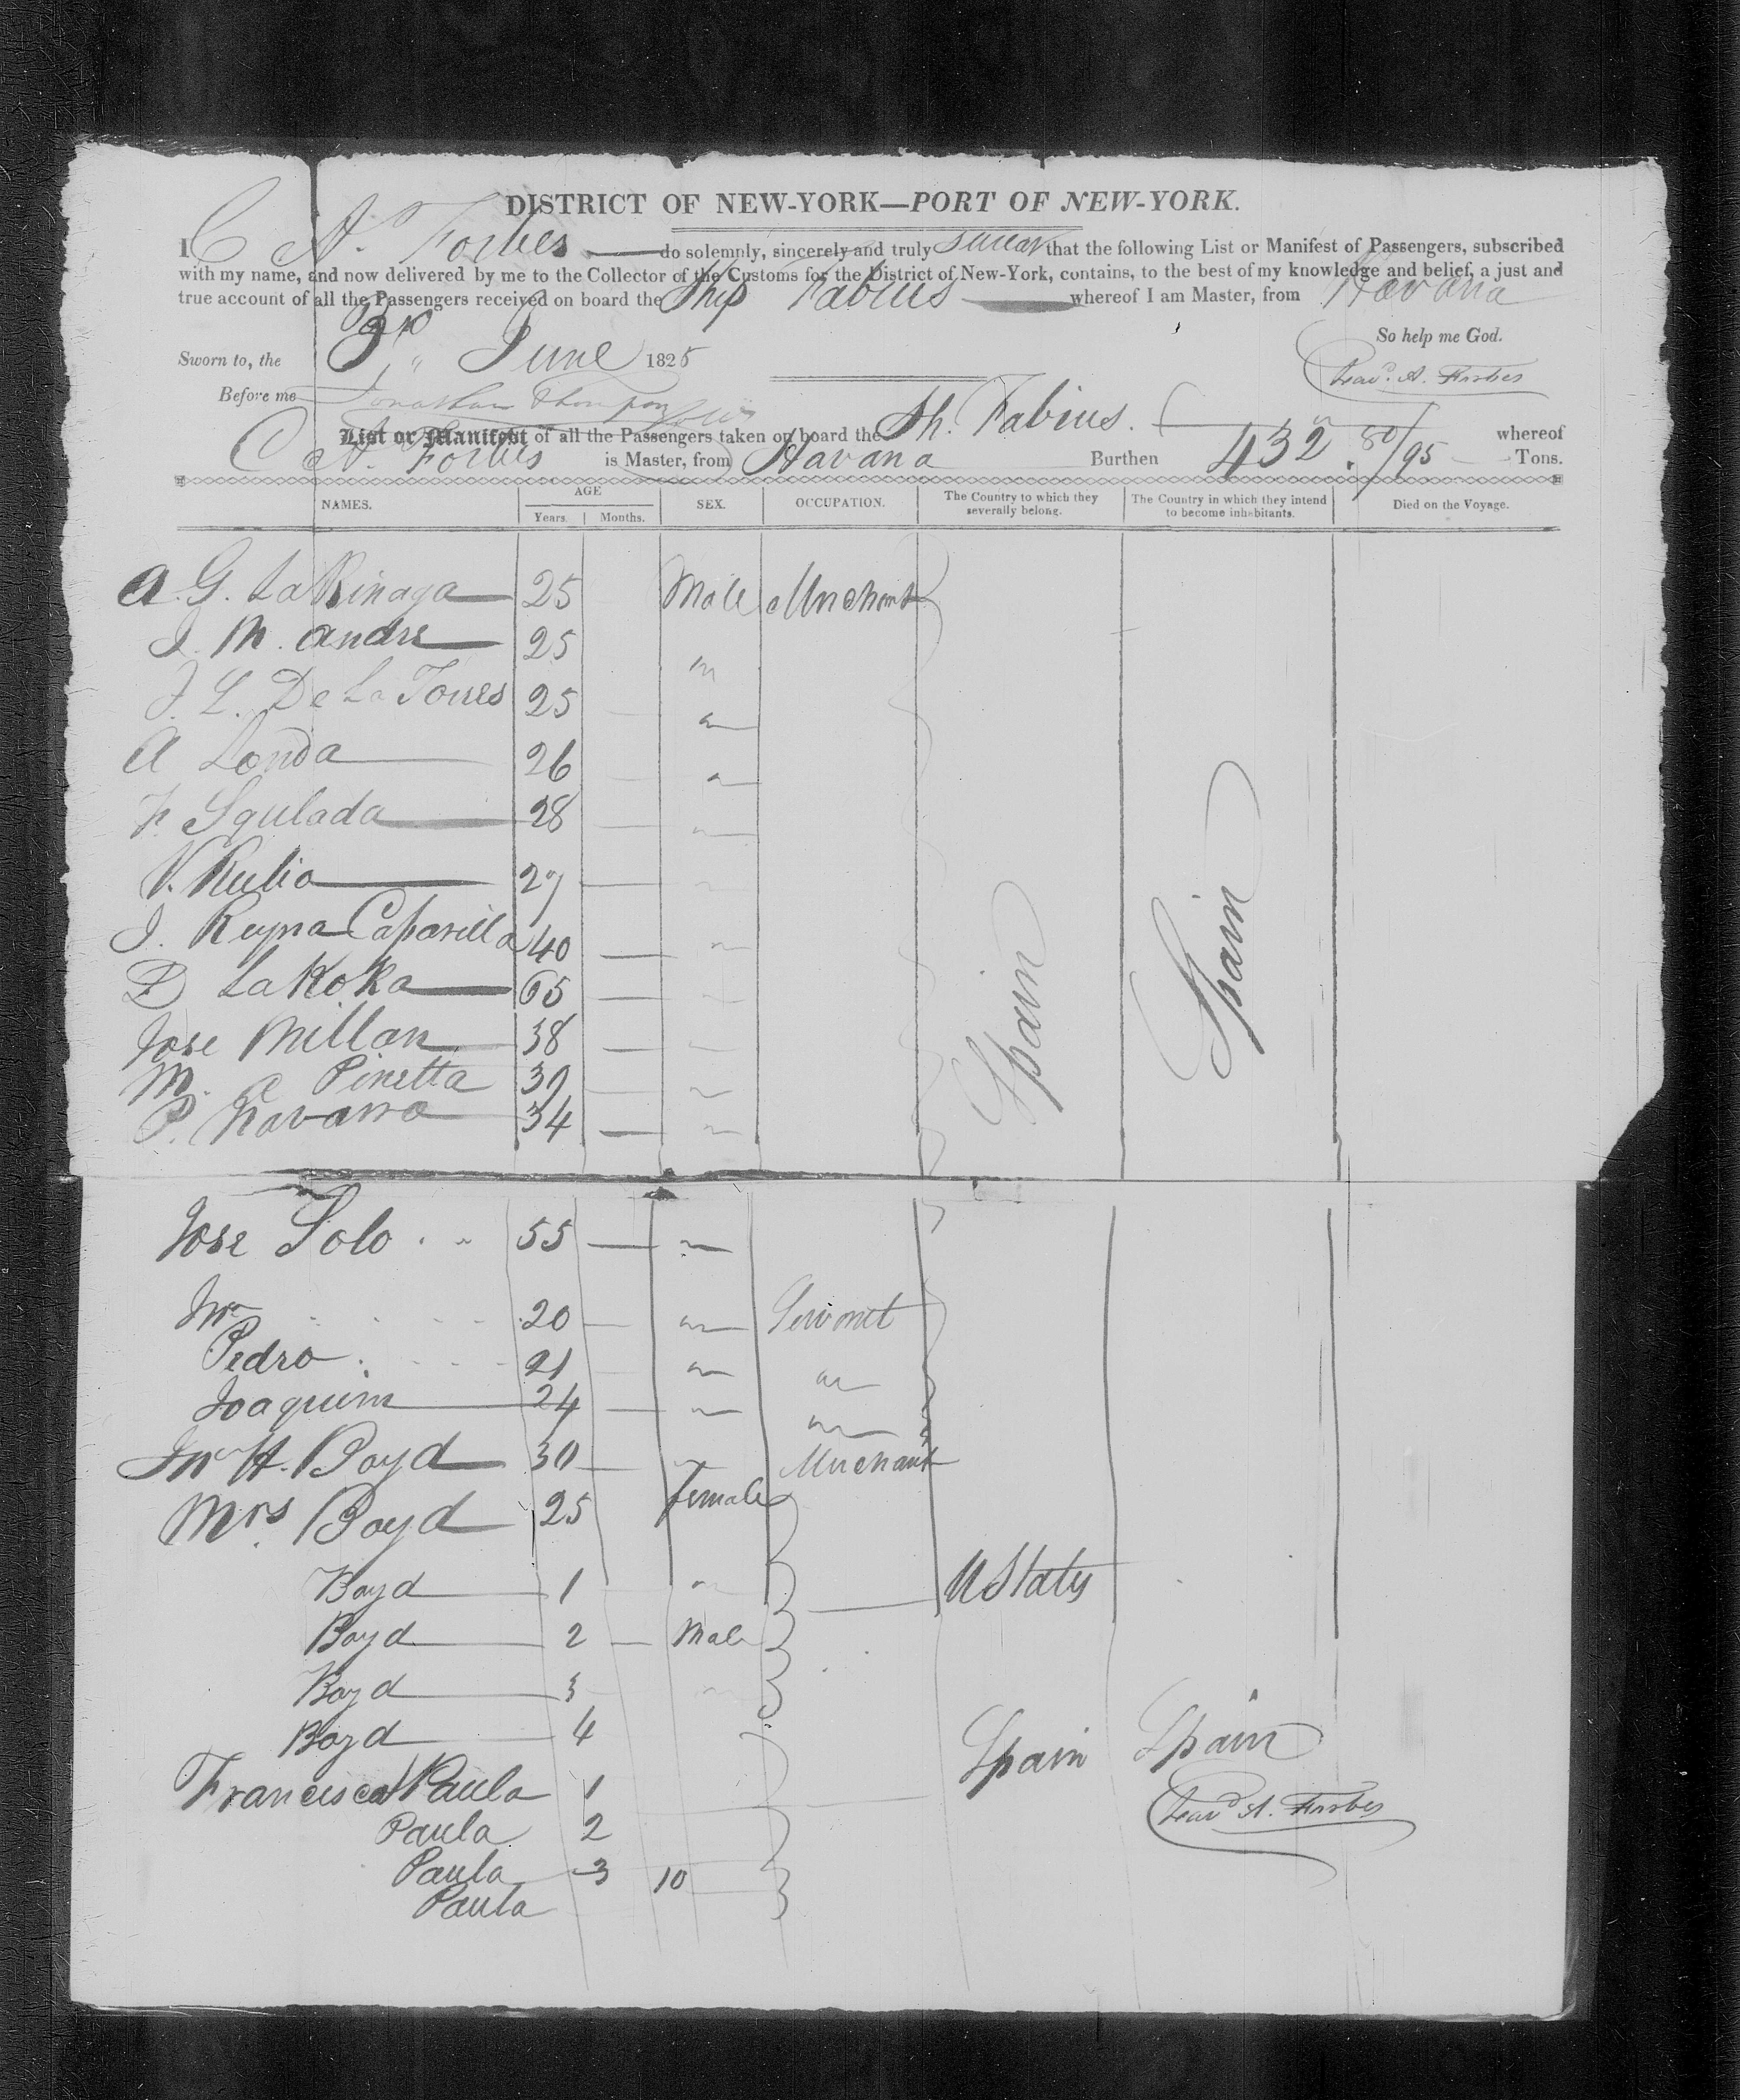 DISTRICT OF NEW-YORK—PORT OF NEW-YORK.
I C A. Forbes do solemnly, sincerely and truly swear that the following List or Manifest of Passengers, subscribed
with my name, and now delivered by me to the Collector of the Customs for the District of New-York, contains, to the best of my knowledge and belief, a just and
true account of all the Passengers received on board the Ship Fabius whereof I am Master, from Havana
So help me God.
Sworn to, the 3 June 1825
A. Forbes
Before me Jonathan Thompson
List or Manifest of all the Passengers taken on board the Sh. Fabius. whereof
C A. Forbes is Master, from Havana Burthen 432 80/95 Tons.
NAMES. AGE Years. Months. SEX. OCCUPATION. The Country to which they severally belong. The Country in which they intend to become inhabitants. Died on the Voyage.
A. G. LaRinaga 25 Male Merchant
J. M. Andre 25 "
J. L. De La Torres 25 "
A Londa 26 "
F. Squlada 28 "
V. Rubio 27 "
J. Reyna Caparilla 40 "
D LaRoka 65 "
Jose Millan 38 "
M. Pinetta 39 "
P. Navarro 34 "
Spain Spain
Jose Solo 55 "
Jno 20 " Servant
Pedro 21 " "
Joaquim 24 " "
Jno H. Boyd 30 " Merchant
Mrs Boyd 25 Female
Boyd 1 " U States
Boyd 2 Male
Boyd 3 "
Boyd 4
Francisca Paula 1 Spain Spain
Paula 2
Paula 3 10
Paula
A. Forbes